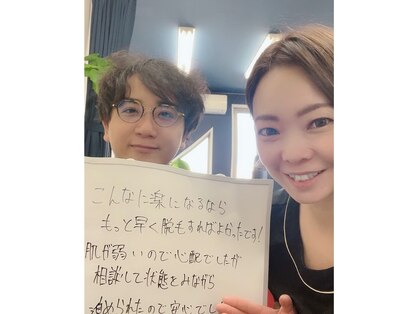 こんなに楽になるなら
もっと早く脱毛すればよかったです!
肌が弱いので心配でしたが
相談して状態をみながら
進められたので安心でし